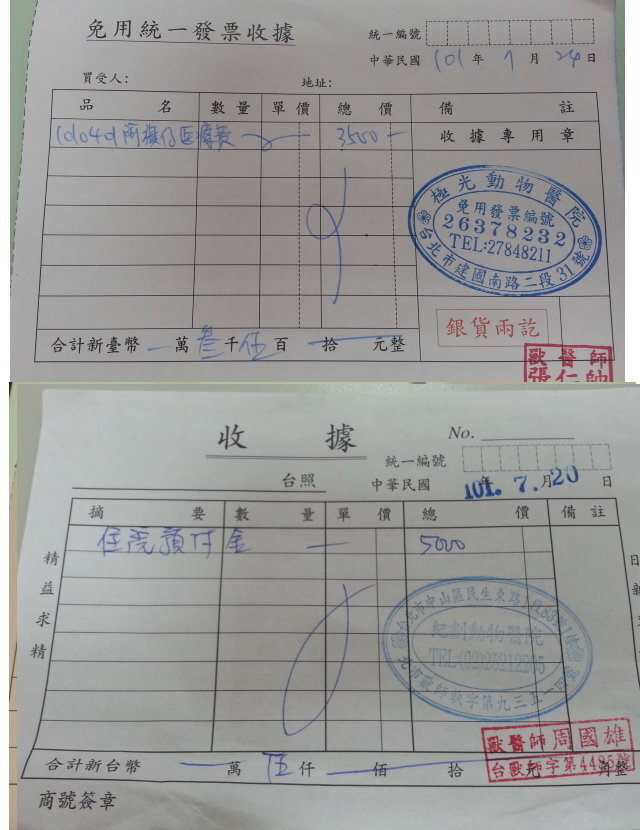 免用統一發票收據
統一編號
中華民國 101 年 7 月 24 日
買受人: 地址:
品名 數量 單價 總價 備註
阿雄仔医療費 3500 收據專用章
極光動物醫院
免用發票編號
26378232
TEL:27848211
台北市建國南路二段31號
銀貨兩訖
合計新臺幣 萬 叁 千 伍 百 拾 元整
獸醫師
張仁帥
收據 No.
統一編號
台照 中華民國 101. 年 7. 月 20 日
摘要 數量 單價 總價 備註
住院預付金 5000
精益求精
台北市中山區民生東路1段
紀劃動物醫院
合計新台幣 萬 伍 仟 佰 拾 元 角整
獸醫師 周國雄
台獸師字第4485號
商號簽章